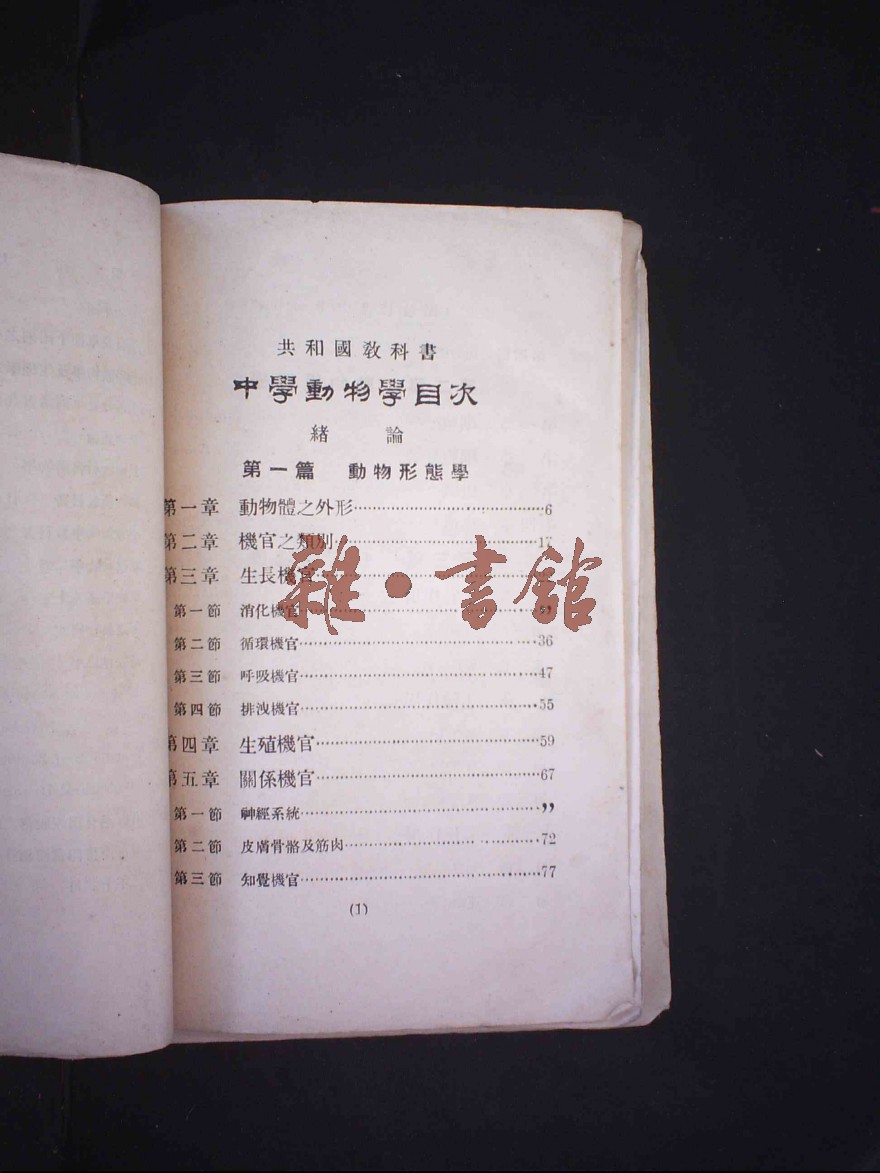 共和國教科書
中學動物學目次
緒論
第一篇 動物形態學
第一章 動物體之外形……………………………6
第二章 機官之類別……………………………17
第三章 生長機官
第一節 消化機官……………………………〃
第二節 循環機官……………………………36
第三節 呼吸機官……………………………47
第四節 排洩機官……………………………55
第四章 生殖機官……………………………59
第五章 關係機官……………………………67
第一節 神經系統……………………………〃
第二節 皮膚骨骼及筋肉……………………………72
第三節 知覺機官……………………………77
(1)
雜·書館